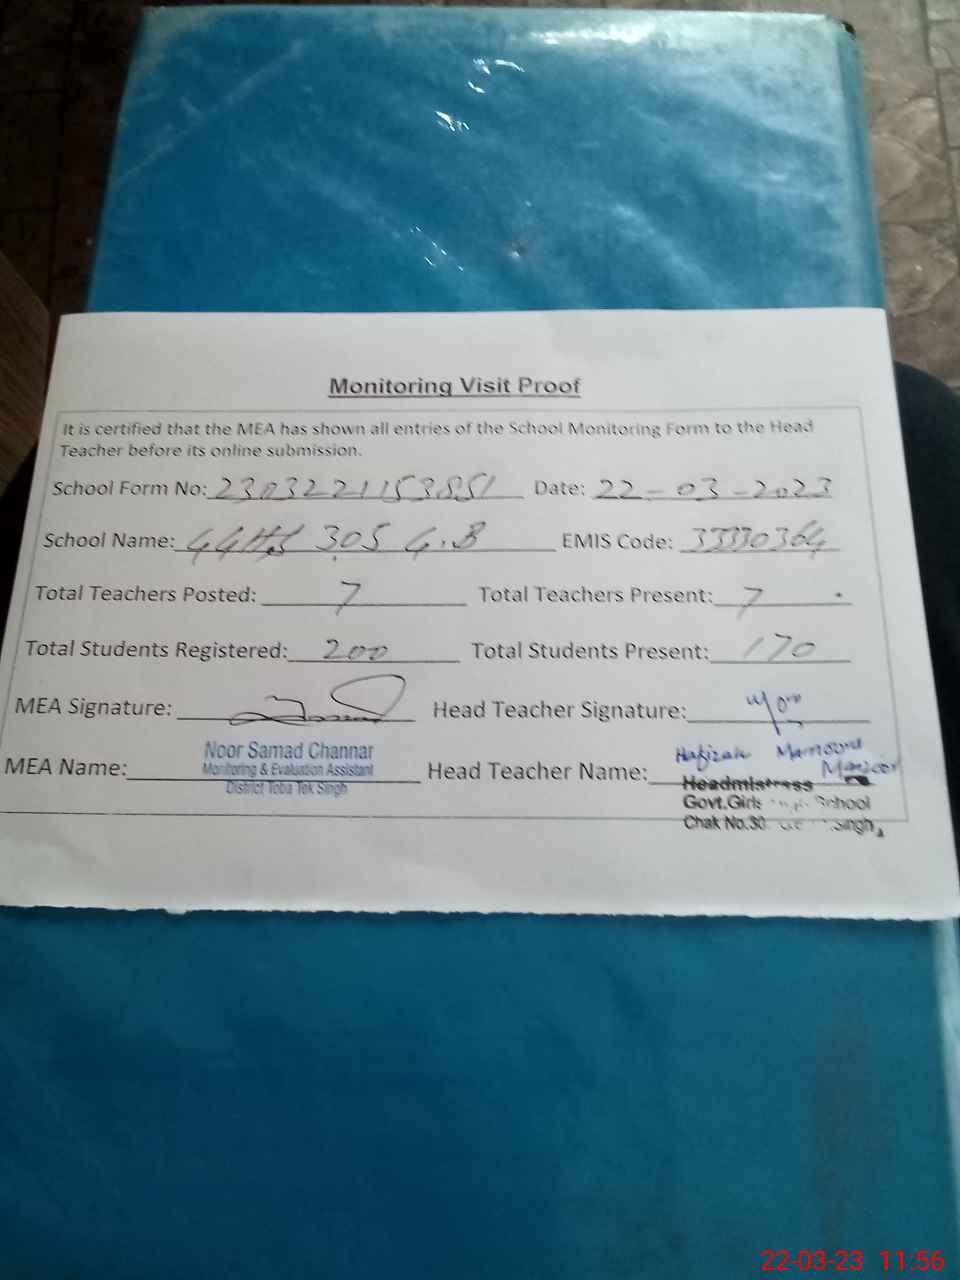 Monitoring Visit Proof
It is certified that the MEA has shown all entries of the School Monitoring Form to the Head
Teacher before its online submission.
School Form No: 2303221153851 Date: 22-03-2023
School Name: GGHS 305 G.B EMIS Code: 33330364
Total Teachers Posted: 7 Total Teachers Present: 7
Total Students Registered: 200 Total Students Present: 170
MEA Signature: Head Teacher Signature:
MEA Name: Noor Samad Channar Head Teacher Name: Hafizah
Monitoring & Evaluation Assistant
District Toba Tek Singh
Headmistress
Govt.Girls School
Chak No.30 Singh
22-03-23 11:56